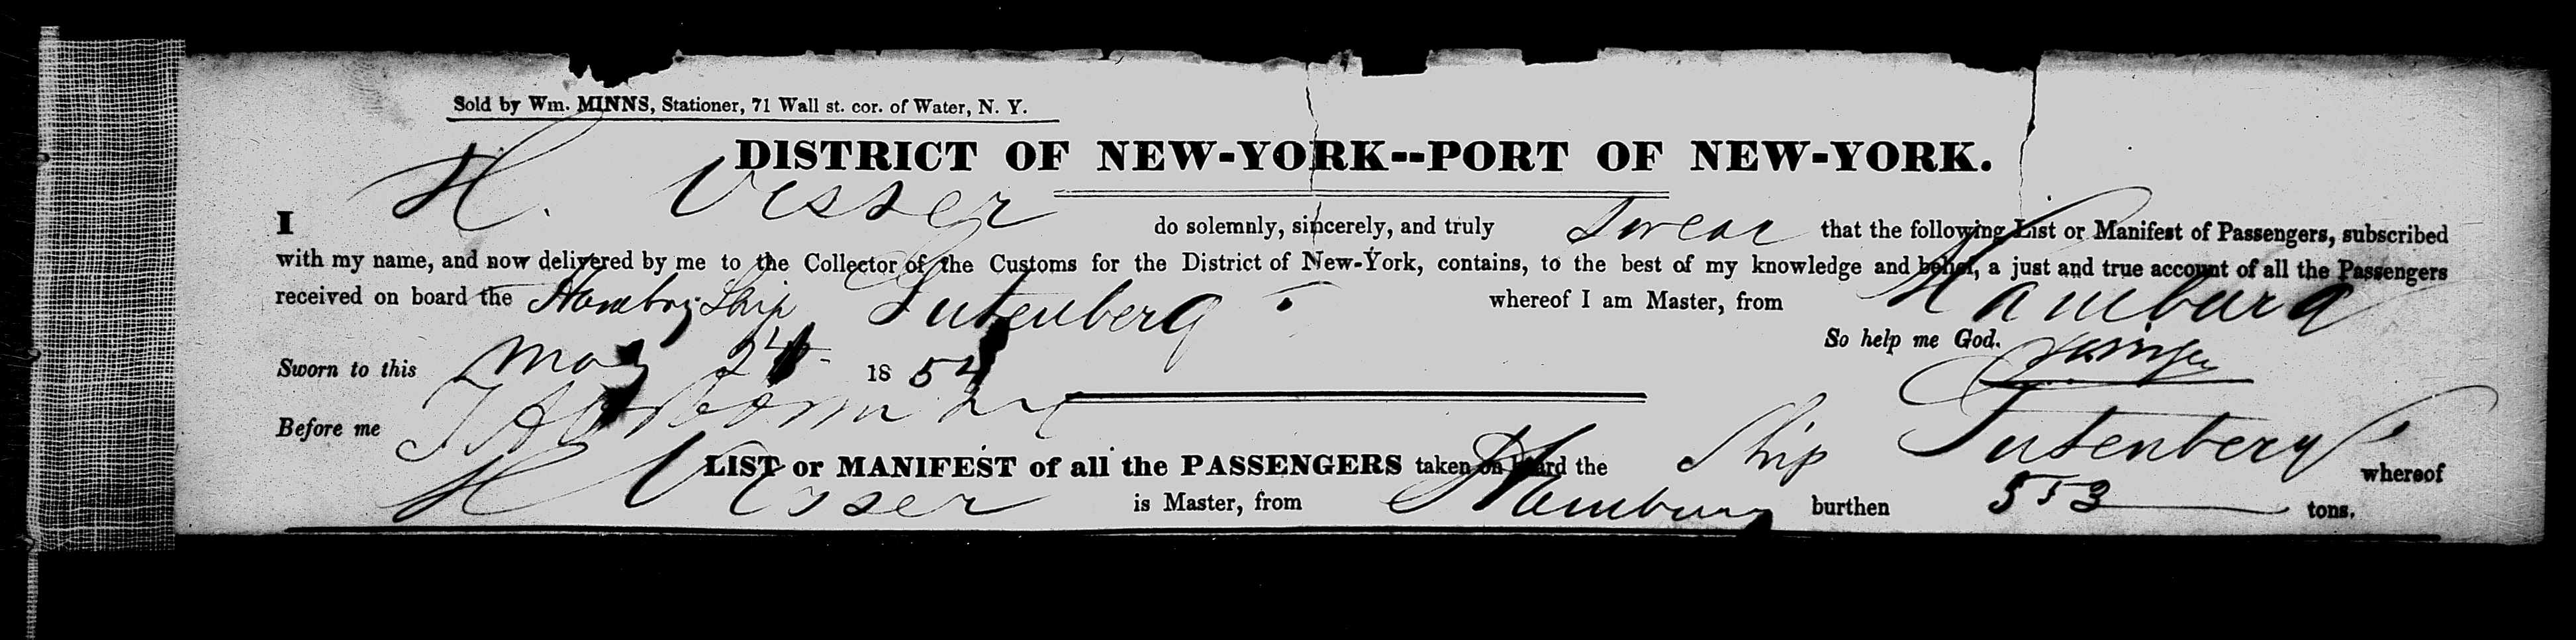 Sold by Wm. MINNS, Stationer, 71 Wall st. cor. of Water, N. Y.
DISTRICT OF NEW-YORK--PORT OF NEW-YORK.
I H. Visser do solemnly, sincerely, and truly swear that the following List or Manifest of Passengers, subscribed
with my name, and now delivered by me to the Collector of the Customs for the District of New-York, contains, to the best of my knowledge and belief, a just and true account of all the Passengers
received on board the Hambrg Ship Gutenberg whereof I am Master, from Hamburg
So help me God.
Sworn to this May 24 1854
Before me
LIST or MANIFEST of all the PASSENGERS taken on board the Ship Gutenberg whereof
H Visser is Master, from Hamburg burthen 553 tons.